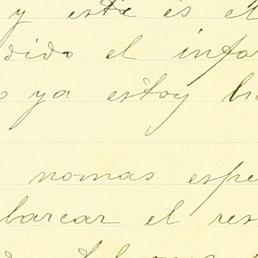 y este es el
dido el infor
o ya estoy
nomas espe
barcar el res